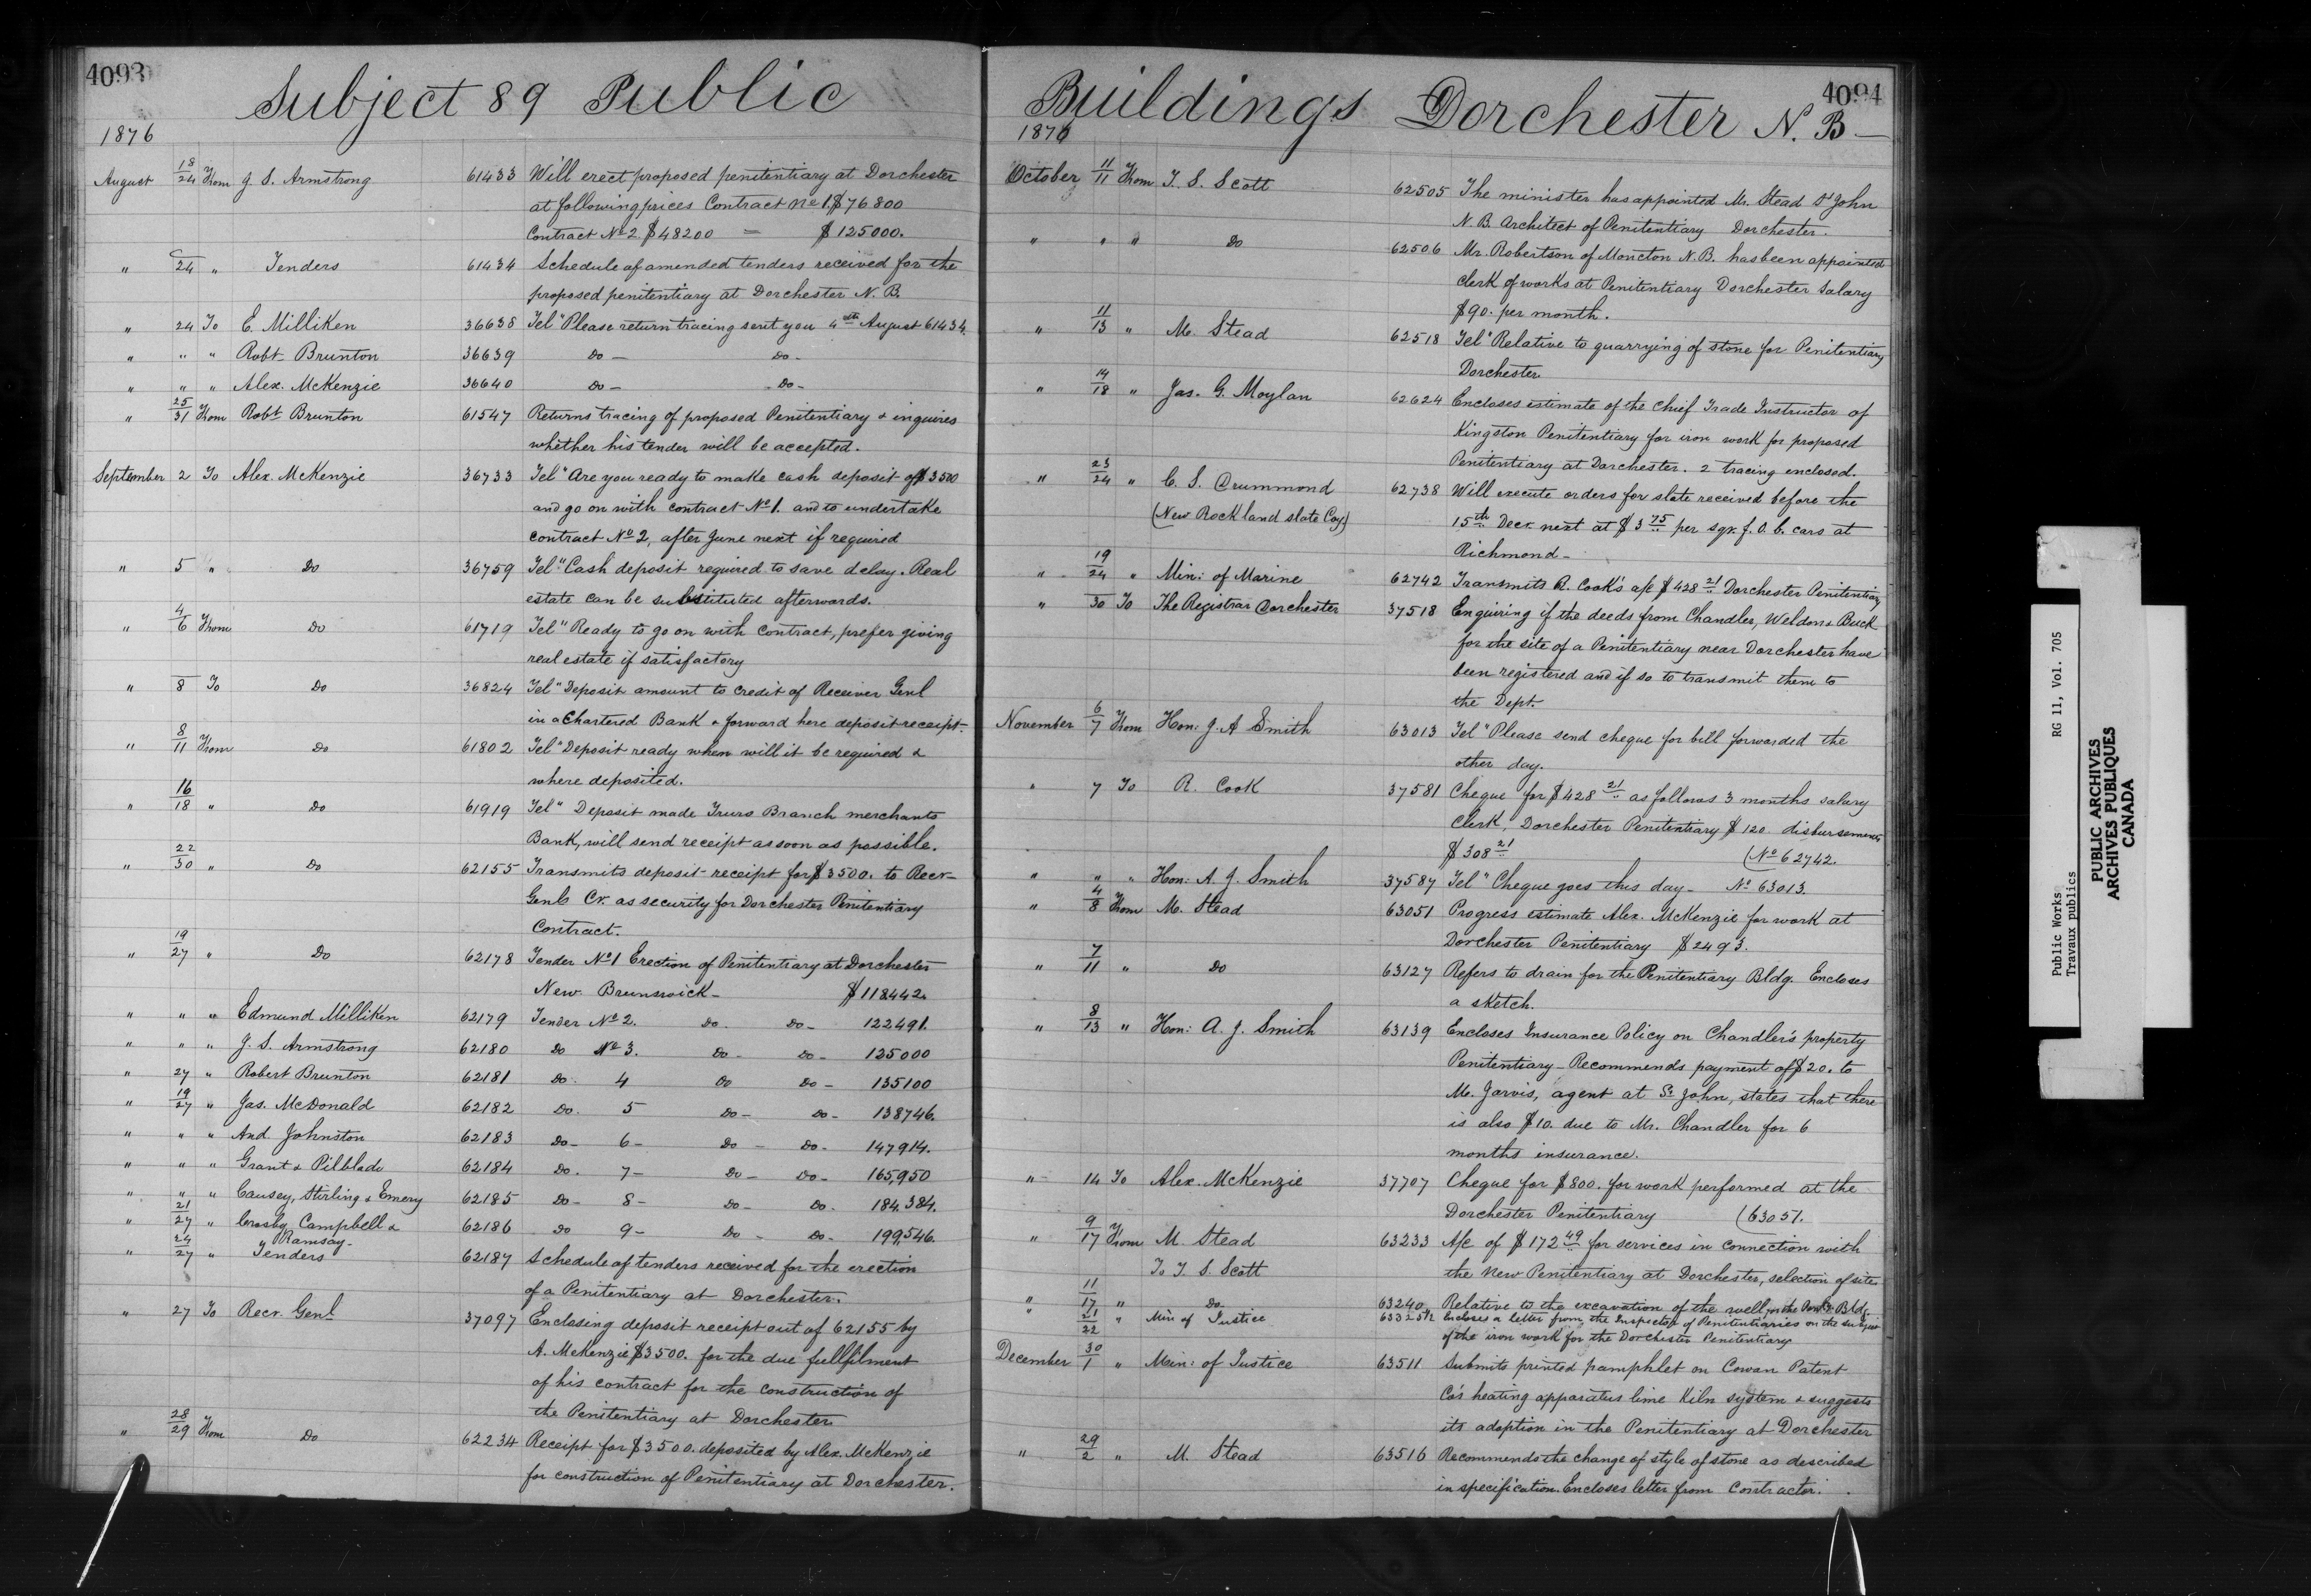 4093
Subject 89 Public
1876
August 18/24 From J. S. Armstrong 61433 Will erect proposed penitentiary at Dorchester
at following prices Contract No 1. $76800
Contract No 2 $48200 = $125000.
" 24 " Tenders 61434 Schedule of amended tenders received for the
proposed penitentiary at Dorchester N. B.
" 24 To E. Milliken 36638 Tel "Please return tracing sent you 4th August 61434.
" " " Robt Brunton 36639 Do — Do -
" " " Alex. McKenzie 36640 Do — Do -
" 25/31 From Robt Brunton 61547 Returns tracing of proposed Penitentiary & inquires
whether his tender will be accepted.
September 2 To Alex. McKenzie 36733 Tel "Are you ready to make cash deposit of $3500
and go on with contract No 1. and to undertake
contract No 2, after June next if required
" 5 " Do 36759 Tel "Cash deposit required to save delay. Real
estate can be substituted afterwards.
" 4/6 From Do 61719 Tel "Ready to go on with contract, prefer giving
real estate if satisfactory
" 8 To Do 36824 Tel "Deposit amount to credit of Receiver Genl
in a Chartered Bank & forward here deposit receipt.
" 8/11 From Do 61802 Tel "Deposit ready when will it be required &
where deposited.
" 16/18 " Do 61919 Tel " Deposit made Truro Branch merchants
Bank, will send receipt as soon as possible.
" 22/30 " Do 62155 Transmits deposit receipt for $3500. to Recr
Genls Cr. as security for Dorchester Penitentiary
Contract.
" 19/27 " Do 62178 Tender No 1 Erection of Penitentiary at Dorchester
New Brunswick - $118442.
" " " Edmund Milliken 62179 Tender No 2. Do. Do - 122491.
" " " J. S. Armstrong 62180 Do No 3. Do - Do - 125000
" 27 " Robert Brunton 62181 Do. 4 Do Do - 135100
" 19/27 " Jas. McDonald 62182 Do. 5 Do - Do - 138746.
" " " And Johnston 62183 Do - 6 - Do - Do - 147914.
" " " Grant & Pilblado 62184 Do. 7 - Do - Do - 165,950
" " " Causey, Stirling & Emery 62185 Do - 8 - Do - Do. 184,384.
" 21/27 " Crosby Campbell &
Ramsay - 62186 Do 9 - Do - Do - 199,546.
" 24/27 " Tenders 62187 Schedule of tenders received for the erection
of a Penitentiary at Dorchester.
" 27 To Recr. Genl 37097 Enclosing deposit receipt out of 62155 by
A. McKenzie $3500. for the due fullfilment
of his contract for the construction of
the Penitentiary at Dorchester
" 28/29 From Do 62234 Receipt for $3500. deposited by Alex. McKenzie
for construction of Penitentiary at Dorchester.
4094
Buildings Dorchester N. B —
1876
October 11/11 From T. S. Scott 62505 The minister has appointed Mr. Stead St John
N. B. Architect of Penitentiary Dorchester.
" " " Do 62506 Mr. Robertson of Moncton N. B. has been appointed
clerk of works at Penitentiary Dorchester Salary
$90. per month.
" 11/13 " M. Stead 62518 Tel "Relative to quarrying of stone for Penitentiary
Dorchester
" 14/18 " Jas. G. Moylan 62624 Encloses estimate of the Chief Trade Instructor of
Kingston Penitentiary for iron work for proposed
Penitentiary at Dorchester. 2 tracing enclosed.
" 23/24 " C. S. Drummond 62738 Will execute orders for slate received before the
(New Rockland slate Coy) 15th Decr next at $3 75 per sqr. f. o. b. cars at
Richmond -
" 19/24 " Min: of Marine 62742 Transmits R. Cook's a/c $428 21 Dorchester Penitentiary
" 30 To The Registrar Dorchester 37518 Enquiring if the deeds from Chandler, Weldon & Buck
for the site of a Penitentiary near Dorchester have
been registered and if so to transmit them to
the Dept.
November 6/7 From Hon: J. A Smith 63013 Tel "Please send cheque for bill forwarded the
other day.
" 7 To R. Cook 37581 Cheque for $428 21 as follows 3 months salary
Clerk, Dorchester Penitentiary $120 disbursements
$308 21 (No 62742.
" " " Hon: A. J. Smith 37587 Tel "Cheque goes this day - No 63013.
" 4/8 From M. Stead 63051 Progress estimate Alex. McKenzie for work at
Dorchester Penitentiary $2493.
" 7/11 " Do 63127 Refers to drain for the Penitentiary Bldg. Encloses
a sketch.
" 8/13 " Hon: A. J. Smith 63139 Encloses Insurance Policy on Chandler's property
Penitentiary - Recommends payment of $20. to
M. Jarvis, agent at St John, states that there
is also $10. due to Mr. Chandler for 6
months insurance.
" 14 To Alex. McKenzie 37707 Cheque for $800. for work performed at the
Dorchester Penitentiary (63051.
" 9/17 From M. Stead 63233 A/c of $172 49 for services in connection with
To T. S. Scott the New Penitentiary at Dorchester, selection of site
" 11/17 " Do 63240 Relative to the excavation of the well, on the Bldg.
" 21/22 " Min of Justice 63325½ Encloses a letter from the Inspector of Penitentiaries on the subject
of the iron work for the Dorchester Penitentiary
December 30/1 " Min: of Justice 63511 Submits printed pamphlet on Cowan Patent
Co's heating apparatus lime Kiln system & suggests
its adoption in the Penitentiary at Dorchester
" 29/2 " M. Stead 63516 Recommends the change of style of stone as described
in specification. Encloses letter from Contractor.
Public Works RG 11, Vol. 705
Travaux publics
PUBLIC ARCHIVES
ARCHIVES PUBLIQUES
CANADA